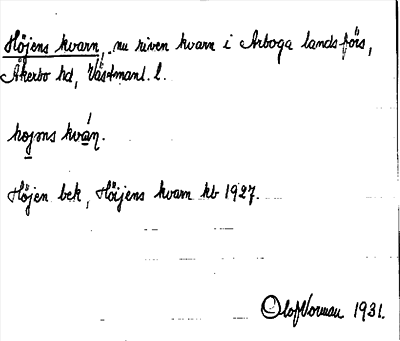 Höjens kvarn, nu riven kvarn i Arboga lands-förs,
Åkerbo hd, Västmanl. l.
hojens kván.
Höjen bek, Höijens kvarn kb 1927.
Olof Norman 1931.